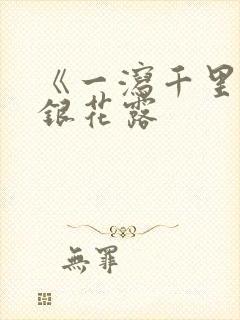 《一瀉千里
銀花露
無罪